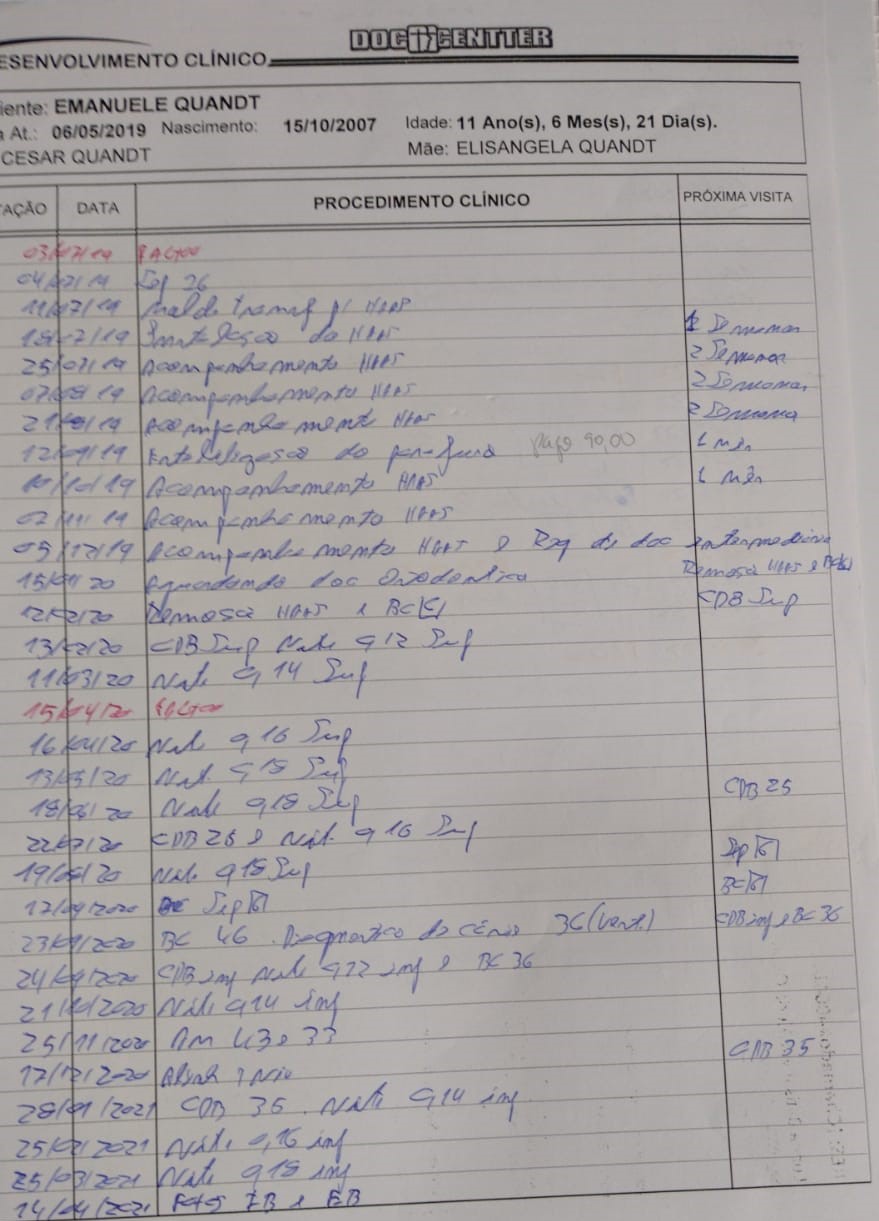 DOC CENTTER
ESENVOLVIMENTO CLÍNICO
iente: EMANUELE QUANDT
a At.: 06/05/2019 Nascimento: 15/10/2007 Idade: 11 Ano(s), 6 Mes(s), 21 Dia(s).
CESAR QUANDT Mãe: ELISANGELA QUANDT
TAÇÃO DATA PROCEDIMENTO CLÍNICO PRÓXIMA VISITA
03/07/19
04/07/19 Sep 26
11/07/19 p/ HAAS
18/07/19 do HAAS 1 Semana
25/07/19 Acompanhamento HAAS 2 Semanas
07/08/19 Acompanhamento HAAS 2 Semanas
21/08/19 Acompanhamento HAAS 2 Semana
12/09/19 do parafuso pago 90,00 1 mês
10/10/19 Acompanhamento HAAS 1 mês
02/11/19 Acompanhamento HAAS
05/12/19 Acompanhamento HAAS e Req de doc intermediária
15/01/20 Aguardando doc Ortodontica Remoção HAAS e
12/02/20 Remoção HAAS e BC CDB Sup
13/02/20 CDB Sup Niti 012 Sup
11/03/20 Niti 014 Sup
15/04/20
16/04/20 Niti 016 Sup
13/05/20 Niti 018 Sup
18/06/20 Niti 018 Sup CDB 25
22/07/20 CDB 25 e Niti 016 Sup
19/08/20 Niti 018 Sup Sep
17/09/2020 Sep BC
23/09/2020 BC 46. Diagnostico de cárie 36 CDB inf e BC 36
24/09/2020 CDB inf Niti 012 inf e BC 36
21/10/2020 Niti 014 inf
25/11/2020 AM 43 e 33
17/12/2020 CDB 35
28/01/2021 CDB 35. Niti 014 inf
25/02/2021 Niti 016 inf
25/03/2021 Niti 018 inf
14/04/2021